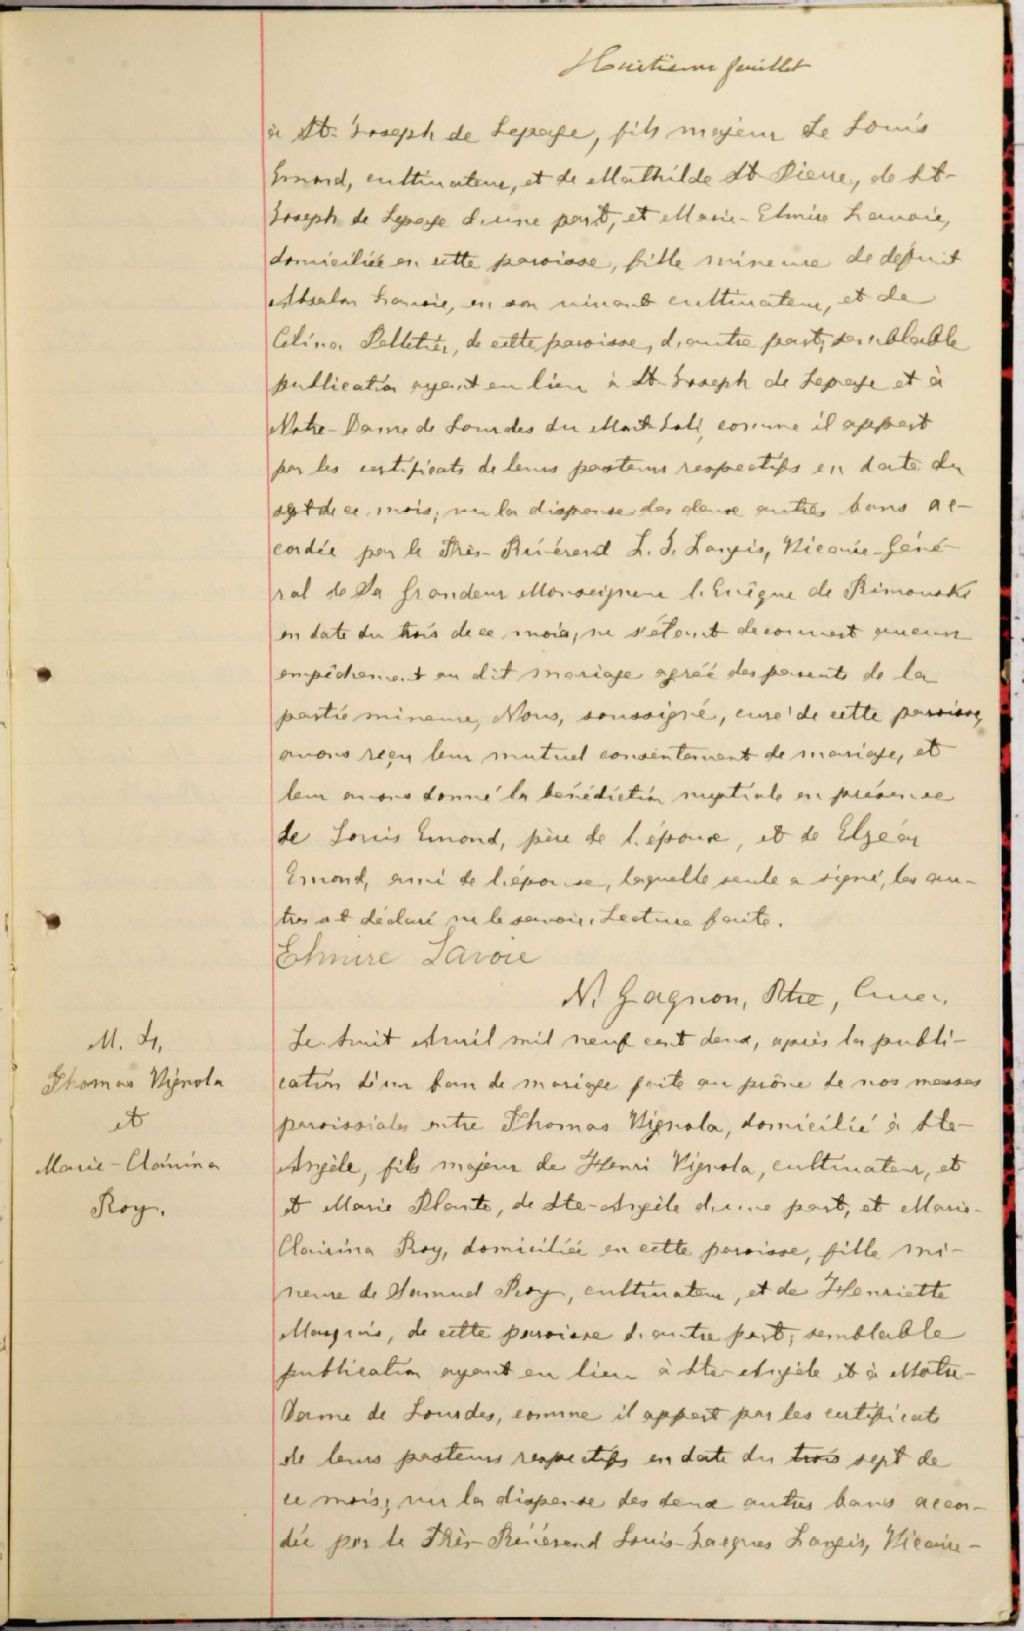 Huitième feuillet
à St-Joseph de Lepage, fils majeur de Louis
Emond, cultivateur, et de Mathilde St Pierre, de St-
Joseph de Lepage d'une part, et Marie-Elmire Lavoie,
domiciliée en cette paroisse, fille mineure de défunt
Absalon Lavoie, en son vivant cultivateur, et de
Célina Pelletier, de cette paroisse, d'autre part; semblable
publication ayant eu lieu à St-Joseph de Lepage et à
Notre-Dame de Lourdes du Mont-Joli, comme il appert
par les certificats de leurs pasteurs respectifs en date du
sept de ce mois; vu la dispense des deux autres bans ac-
cordée par le Très-Révérend L. J. Langis, Vicaire-Géné-
ral de Sa Grandeur Monseigneur l'Evêque de Rimouski
en date du trois de ce mois, ne s'étant découvert aucun
empêchement au dit mariage agréé des parents de la
partie mineure, Nous, soussigné, curé de cette paroisse,
avons reçu leur mutuel consentement de mariage, et
leur avons donné la bénédiction nuptiale en présence
de Louis Emond, père de l'époux, et de Elzéar
Emond, ami de l'épouse, laquelle seule a signé, les au-
tres ont déclaré ne le savoir. Lecture faite.
Elmire Lavoie
N. Gagnon, Ptre, Curé.
M. 4,
Thomas Vignola
et
Marie-Clairina
Roy.
Le huit Avril mil neuf cent deux, après la publi-
cation d'un ban de mariage faite au prône de nos messes
paroissiales entre Thomas Vignola, domicilié à Ste-
Angèle, fils majeur de Henri Vignola, cultivateur, et
et Marie Plante, de Ste-Angèle d'une part, et Marie-
Clairina Roy, domiciliée en cette paroisse, fille mi-
neure de Samuel Roy, cultivateur, et de Henriette
Marquis, de cette paroisse d'autre part; semblable
publication ayant eu lieu à Ste-Angèle et à Notre-
Dame de Lourdes, comme il appert par les certificats
de leurs pasteurs respectifs en date du trois sept de
ce mois; vu la dispense des deux autres bans accor-
dée par le Très-Révérend Louis-Jacques Langis, Vicaire-